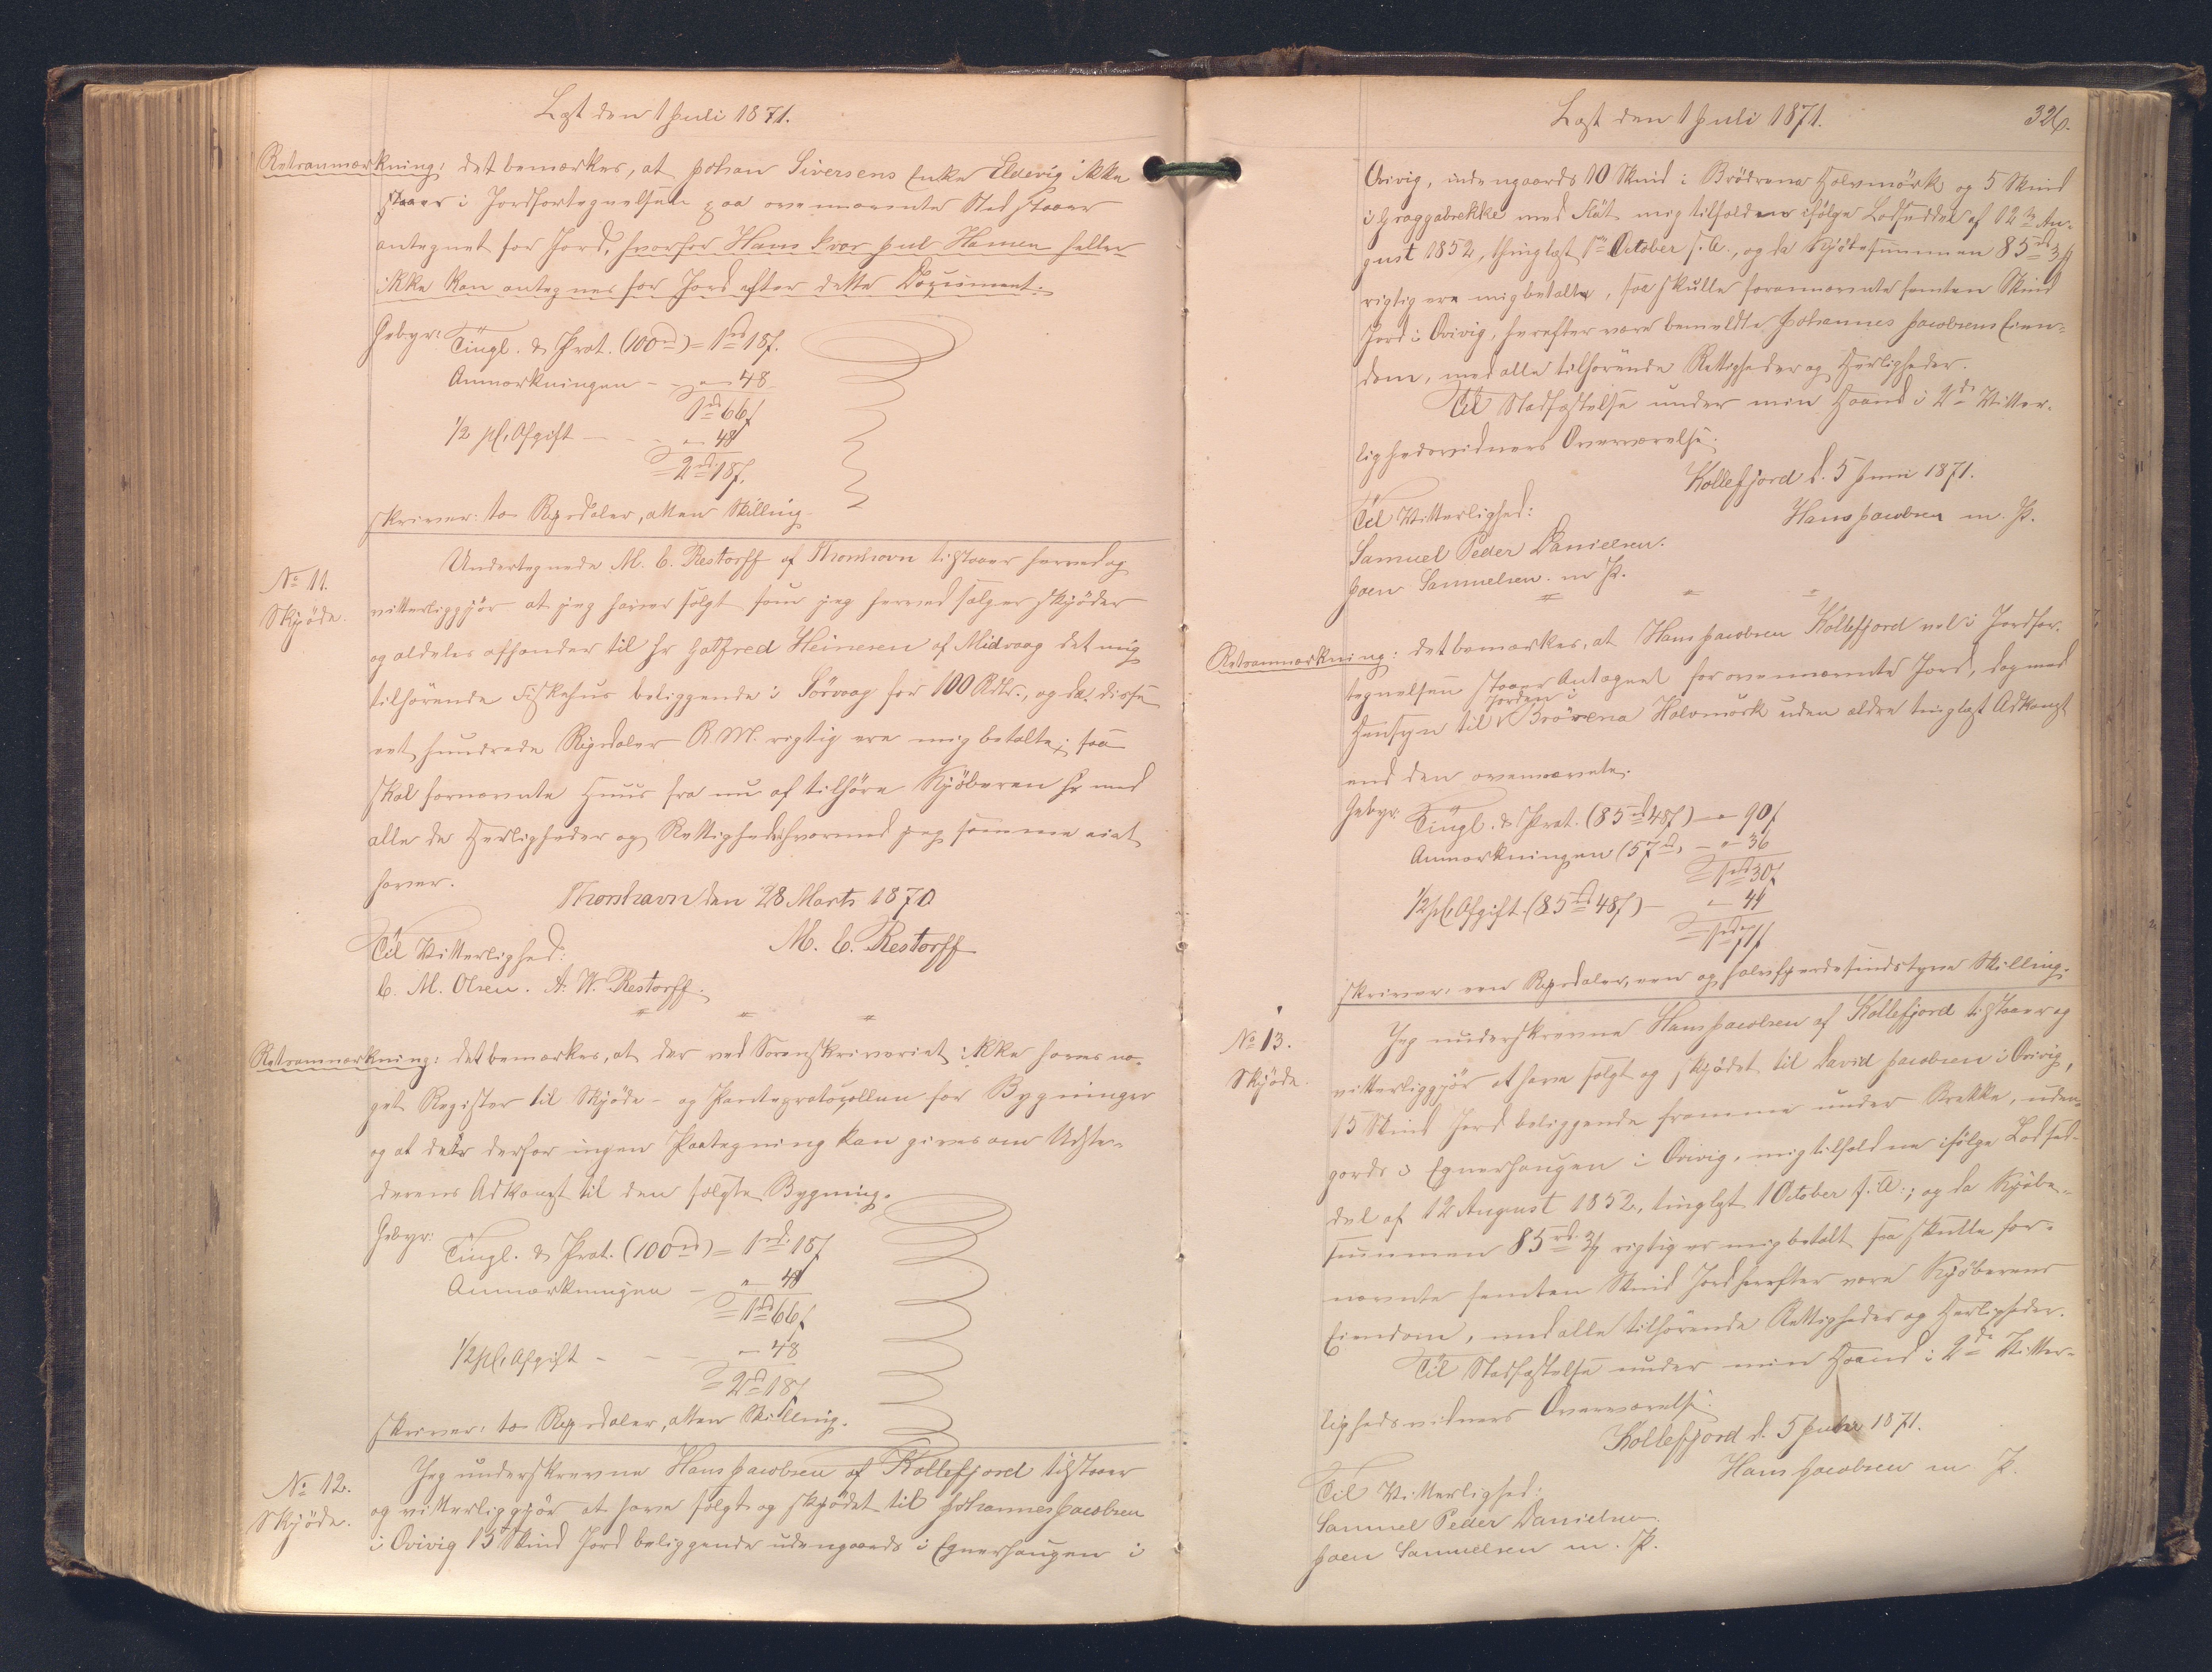 Læst den 1 Juli 1871.
Retsanmærkning: det bemærkes, at Johan Siversens Enke Elsevig ikke
staaer i Jordfortegnelsen paa ovennævnte Sted staaer
antegnet for Jord, hvorfor Hans Hansen heller
ikke kan antegnes for Jord efter dette Document.
Gebyr: Tingl. & Prot. (100rd) = 1rd 18ſ.
Anmærkningen - - " 48
1rd 66ſ
1/2 pCt. Afgift - - - " 48
2rd 18ſ.
skriver: to Rigsdaler, atten Skilling
No 11.
Skjöde.
Undertegnede M. C. Restorff af Thorshavn tilstaaer herved og
vitterliggjör at jeg haver solgt som jeg herved sælger skjöder
og aldeles afhænder til Hr Gotfred Heinesen af Midvaag det mig
tilhörende Fiskehus beliggende i Sörvaag for 100 Rdlr., og da disse
eet hundrede Rigsdaler R.M. rigtig ere mig betalte, saa
skal fornævnte Huus fra nu af tilhöre Kjöberen Hr med
alle de Herligheder og Rettigheder hvormed jeg samme eiet
haver.
Thorshavn den 28 Marts 1870
M. C. Restorff
Til Vitterlighed:
C. M. Olsen. A. W. Restorff.
Retsanmærkning: det bemærkes, at der ved Sorenskriveriet ikke haves no-
get Register til Skjöde- og Panteprotocollen for Bygninger
og at der derfor ingen Paategning kan gives om Udste-
derens Adkomst til den solgte Bygning.
Gebyr: Tingl. & Prot. (100rd) = 1rd 18ſ
Anmærkningen - " 48
1rd 66ſ
1/2 pCt. Afgift - - - " 48
2rd 18ſ
skriver: to Rigsdaler, atten Skilling.
No 12.
Skjöde.
Jeg underskrevne Hans Jacobsen af Kollefjord tilstaaer
og vitterliggjör at have solgt og skjödet til Johannes Jacobsen
i Qvivig 15 Skind Jord beliggende udengaards i Egnerhaugen i
Læst den 1 Juli 1871.
326.
Qvivig, indengaards 10 Skind i Brödrena Halvmörk og 5 Skind
i Graggabrekke med Fät mig tilfalden ifölge Lodseddel af 12te Au-
gust 1852, thinglæst 1ste October s. A., og da Kjöbesummen 85rd 3ſ
rigtig ere mig betalte, saa skulle forannævnte femten Skind
Jord i Qvivig, herefter være bemeldte Johannes Jacobsens Eien-
dom, med alle tilhörende Rettigheder og Herligheder.
Til Stadfæstelse under min Haand i 2de Vitter-
lighedsvidners Overværelse.
Kollefjord d. 5 Juni 1871.
Hans Jacobsen m. P.
Til Vitterlighed:
Samuel Peder Danielsen.
Joen Samuelsen. m P.
Retsanmærkning: det bemærkes, at Hans Jacobsen Kollefjord vel i Jordfor-
tegnelsen staaer Antegnet for ovennævnte Jord, dog med
Hensyn til Jorden i Brörena Halvmörk uden ældre tinglæst Adkomst
end den ovennævnte.
Gebyr: Tingl. & Prot. (85rd 48ſ) - " 90ſ
Anmærkningen (57rd) - " 36
1rd 30ſ
1/2 pCt. Afgift. (85rd 48ſ) - " 41
1rd 71ſ
skriver: een Rigsdaler, een og halvfjerdesindstyve Skilling.
No 13.
Skjöde.
Jeg underskrevne Hans Jacobsen af Kollefjord tilstaaer og
vitterliggjör at have solgt og skjödet til David Jacobsen i Qvivig,
15 Skind Jord beliggende framme under Brekke, uden-
gards i Egnerhaugen i Qvivig, mig tilfaldne ifölge Lodsed-
del af 12 August 1852, tinglæst 1 October s. A.; og da Kjöbe-
summen 85rd 3ſ rigtig er mig betalt saa skulle for-
nævnte femten Skind Jord herefter være Kjöberens
Eiendom, med alle tilhörende Rettigheder og Herligheder.
Til Stadfæstelse under min Haand i 2de Vitter-
lighedsvidners Overværelse.
Kollefjord d. 5 Juni 1871.
Hans Jacobsen m. P.
Til Vitterlighed:
Samuel Peder Danielsen.
Joen Samuelsen m. P.